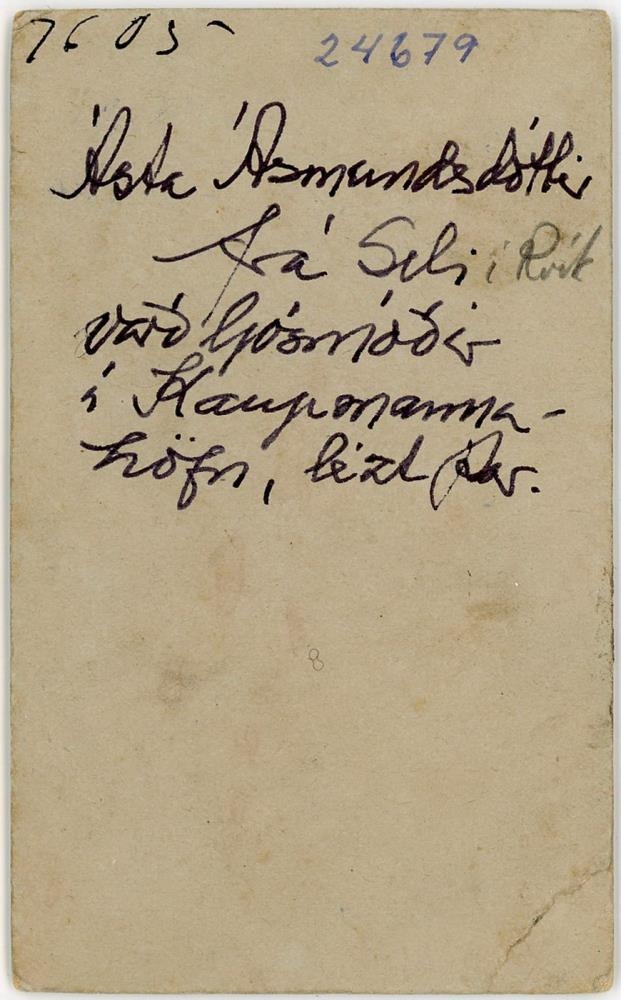 7605
24679
Ásta Ásmundsdóttir
frá Seli í Rvík
varð ljósmóðir
í Kaupmanna-
höfn, lézt þar.
8